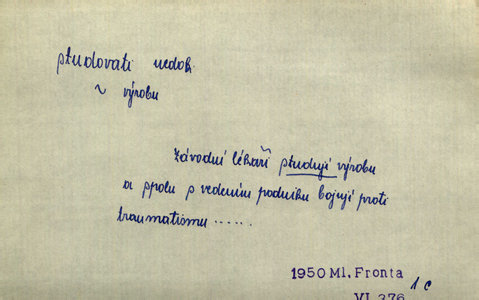 studovati nedok
~ výrobu
závodní lékaři studují výrobu
a spolu s vedením podniku bojují proti
traumatismu ......
1950 Ml. Fronta 1c
VI 376